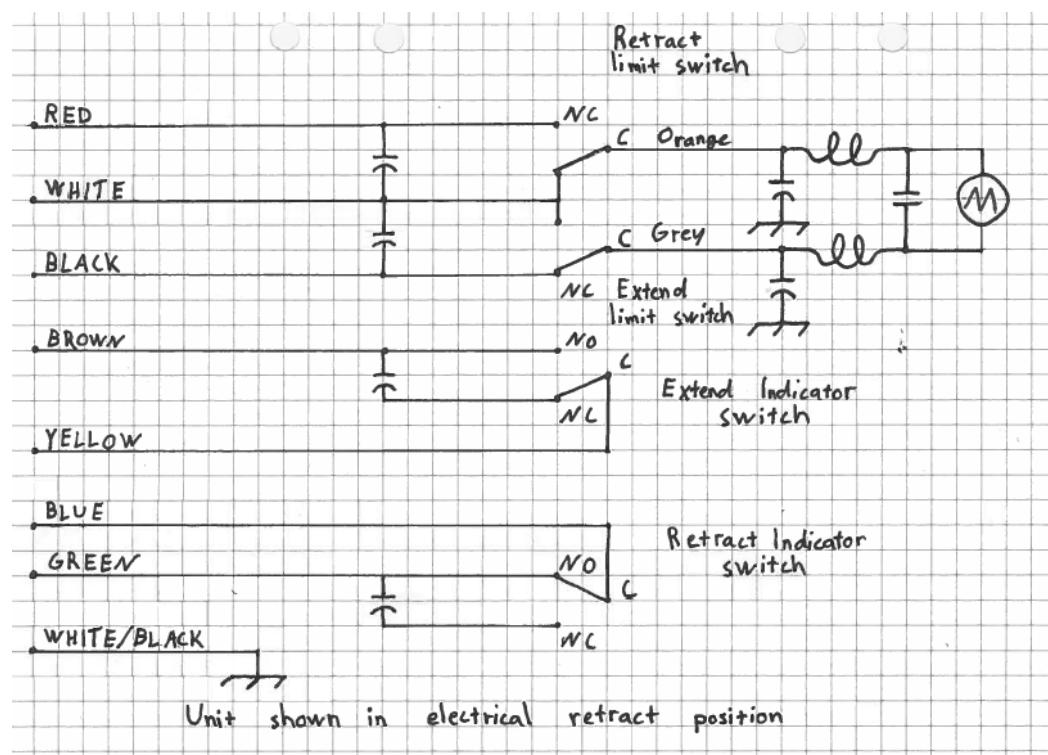 Retract
limit switch
RED
NC
C Orange
WHITE
C Grey
BLACK
NC Extend
limit switch
BROWN
NO
C
Extend Indicator
switch
NC
YELLOW
BLUE
Retract Indicator
switch
GREEN
NO
C
WHITE/BLACK
NC
M
Unit shown in electrical retract position